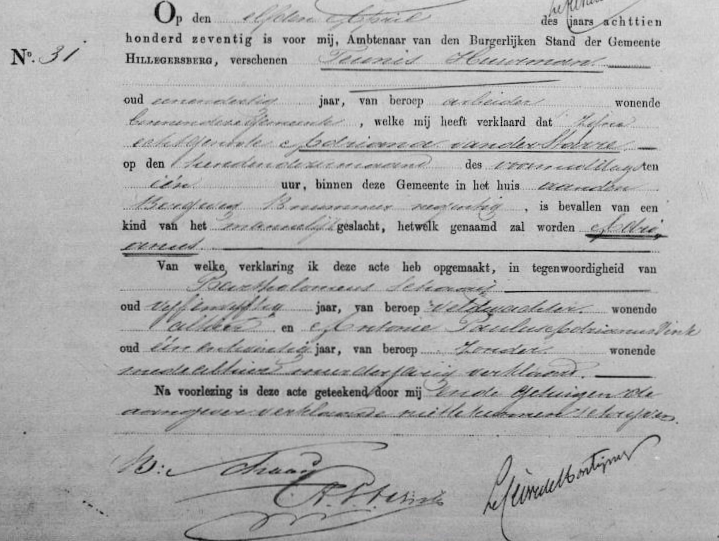 Op den elfden April des jaars achttien
honderd zeventig is voor mij, Ambtenaar van den Burgerlijken Stand der Gemeente
No. 31 HILLEGERSBERG, verschenen Teunis Huisman
oud eenendertig jaar, van beroep arbeider wonende
binnen deze Gemeente, welke mij heeft verklaard dat zijne
echtgenoote Adriana van der Starre
op den tienden dezer maand des voormiddags ten
één uur, binnen deze Gemeente in het huis aan den
Bergweg B nummer negentig, is bevallen van een
kind van het mannelijk geslacht, hetwelk genaamd zal worden Adri
anus.
Van welke verklaring ik deze acte heb opgemaakt, in tegenwoordigheid van
Bartholomeus Schaaij
oud vijfenvijftig jaar, van beroep veldwachter wonende
alhier en Antonie Paulus Adrianus Vink
oud één en twintig jaar, van beroep zonder wonende
mede alhier meerderjarig verklaard.
Na voorlezing is deze acte geteekend door mij en de getuigen de
aangever verklaarde niet te kunnen schrijven.
B: Schaaij